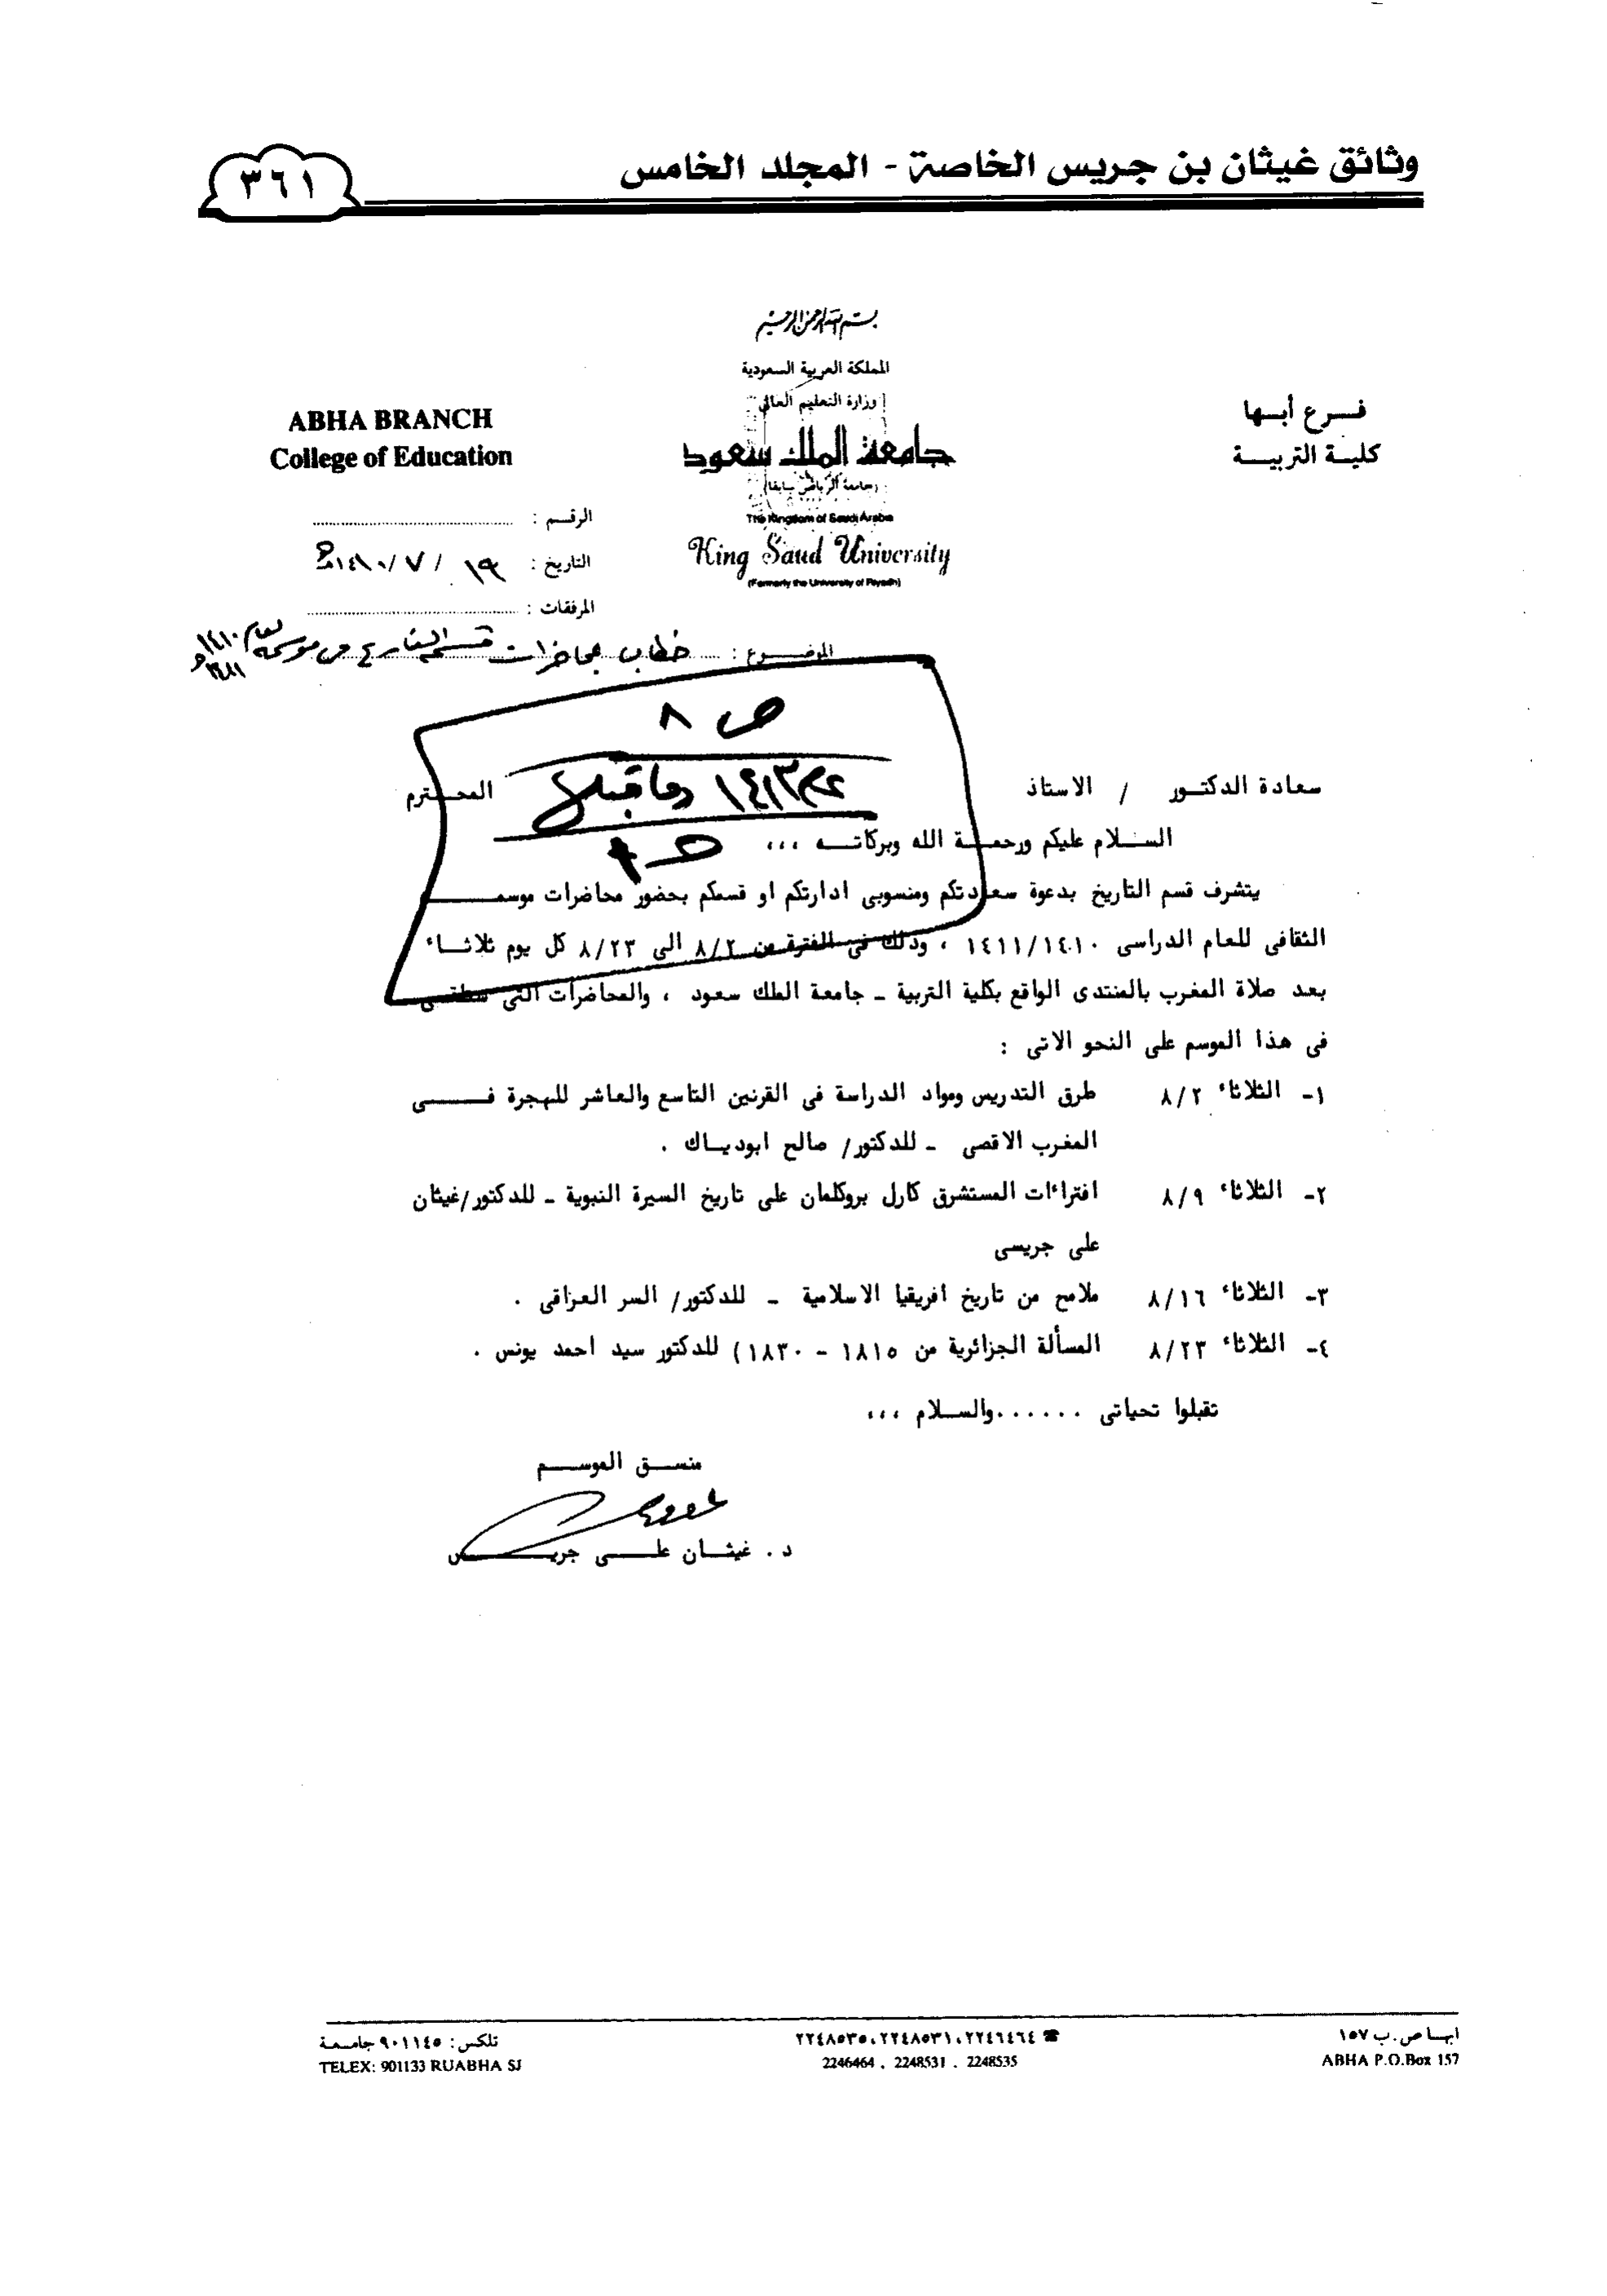 وثائق غيثان بن جريس الخاصة - المجلد الخامس
٣٦١
بسم الله الرحمن الرحيم
المملكة العربية السعودية
وزارة التعليم العالي
جامعة الملك سعود
(جامعة الرياض سابقا)
The Kingdom of Saudi Arabia
King Saud University
(Formerly the University of Riyadh)
فرع أبها
كلية التربية
ABHA BRANCH
College of Education
الرقم :
التاريخ : ١٩ / ٧ / ١٤١٠هـ
المرفقات :
الموضوع : خطاب محاضرات قسم التاريخ في موسمه لعام ١٤١٠
١٤١١هـ
ص ٨
١٤١٣هـ وما قبل
سعادة الدكتور / الاستاذ المحترم
السلام عليكم ورحمة الله وبركاته ،،،
يتشرف قسم التاريخ بدعوة سعادتكم ومنسوبى ادارتكم او قسمكم بحضور محاضرات موسمه
الثقافى للعام الدراسى ١٤١١/١٤١٠ ، وذلك فى الفترة من ٨/٢ الى ٨/٢٣ كل يوم ثلاثاء
بعد صلاة المغرب بالمنتدى الواقع بكلية التربية - جامعة الملك سعود ، والمحاضرات التى ستلقى
فى هذا الموسم على النحو الاتى :
١- الثلاثاء ٨/٢ طرق التدريس ومواد الدراسة فى القرنين التاسع والعاشر للهجرة فى
المغرب الاقصى - للدكتور/ صالح ابودياك .
٢- الثلاثاء ٨/٩ افتراءات المستشرق كارل بروكلمان على تاريخ السيرة النبوية - للدكتور/غيثان
على جريسى
٣- الثلاثاء ٨/١٦ ملامح من تاريخ افريقيا الاسلامية - للدكتور/ السر العراقى .
٤- الثلاثاء ٨/٢٣ المسألة الجزائرية من ١٨١٥ - ١٨٣٠) للدكتور سيد احمد يونس .
تقبلوا تحياتى ......والسلام ،،،
منسق الموسم
د . غيثان على جريس
ابها ص.ب ١٥٧
ABHA P.O.Box 157
☎ ٢٢٤٦٤٦٤ ، ٢٢٤٨٥٣١ ، ٢٢٤٨٥٣٥
2246464 . 2248531 . 2248535
تلكس : ٩٠١١٤٥ جامعة
TELEX: 901133 RUABHA SJ